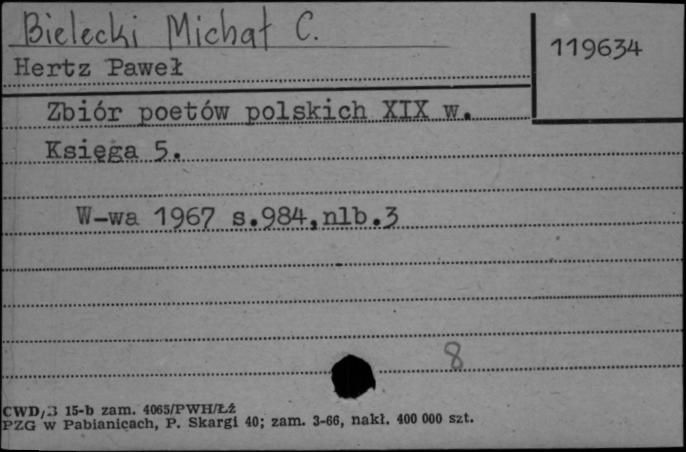 Bielecki Michał C.
119634
Hertz Paweł
Zbiór poetów polskich XIX w.
Księga 5.
W-wa 1967 s.984,nlb.3
8
CWD/B 15-b zam. 4065/PWH/Łź
PZG w Pabianicach, P. Skargi 40; zam. 3-66, nakł. 400 000 szt.